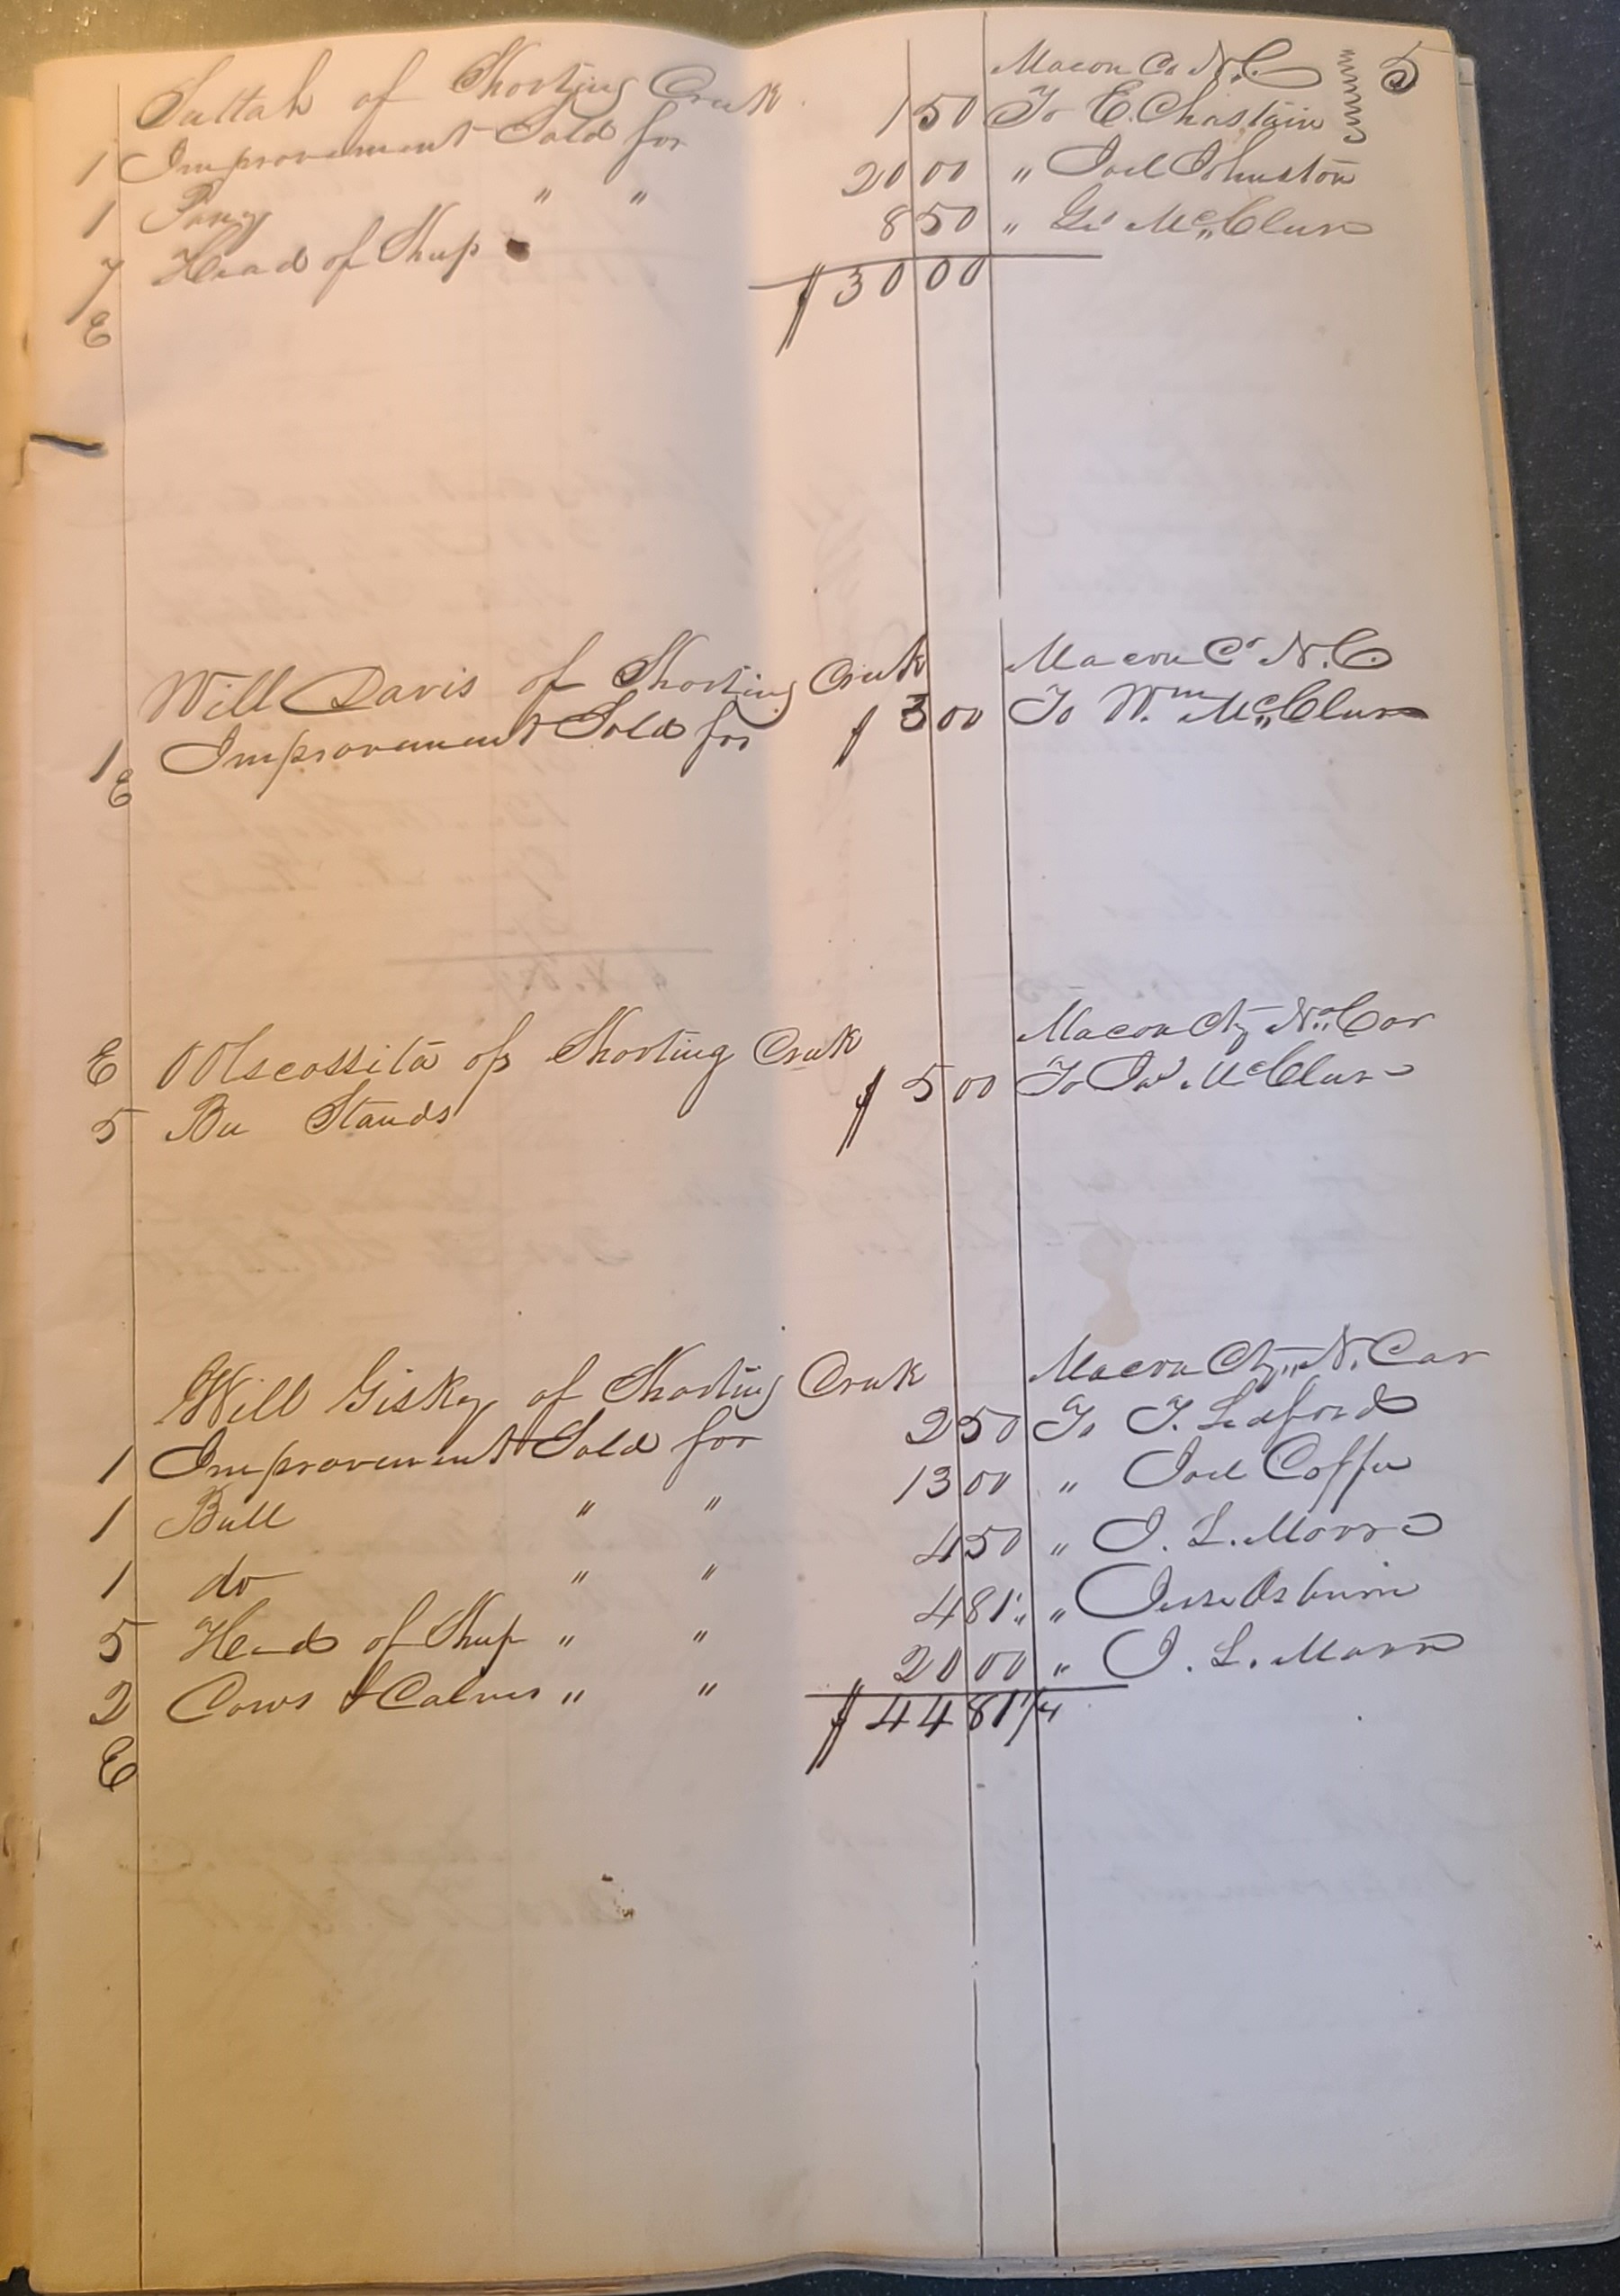 5
Suttah of Shooting Creek Macon Co N.C.
1 Improvement Sold for 1 50 To E. Chastain
1 Pony " " 20 00 " Joel Johnston
7 Head of Sheep 8 50 " McClure
E $30 00
Will Davis of Shooting Creek Macon Co N.C.
1 Improvement Sold for $3 00 To Wm McClure
E
E of Shooting Creek Macon Cty No Car
5 Bee Stands $5 00 To McClure
Will Giskey of Shooting Creek Macon Cty N. Car
1 Improvement Sold for 2 50 To T. Ledford
1 Bull " " 13 00 " Joel Coffee
1 do " " 4 50 " J. L. Moore
5 Head of Sheep " " 4 81 1/4 " Jesse Osburn
2 Cows & Calves " " 20 00 " J. L. Moore
E $44 81 1/4